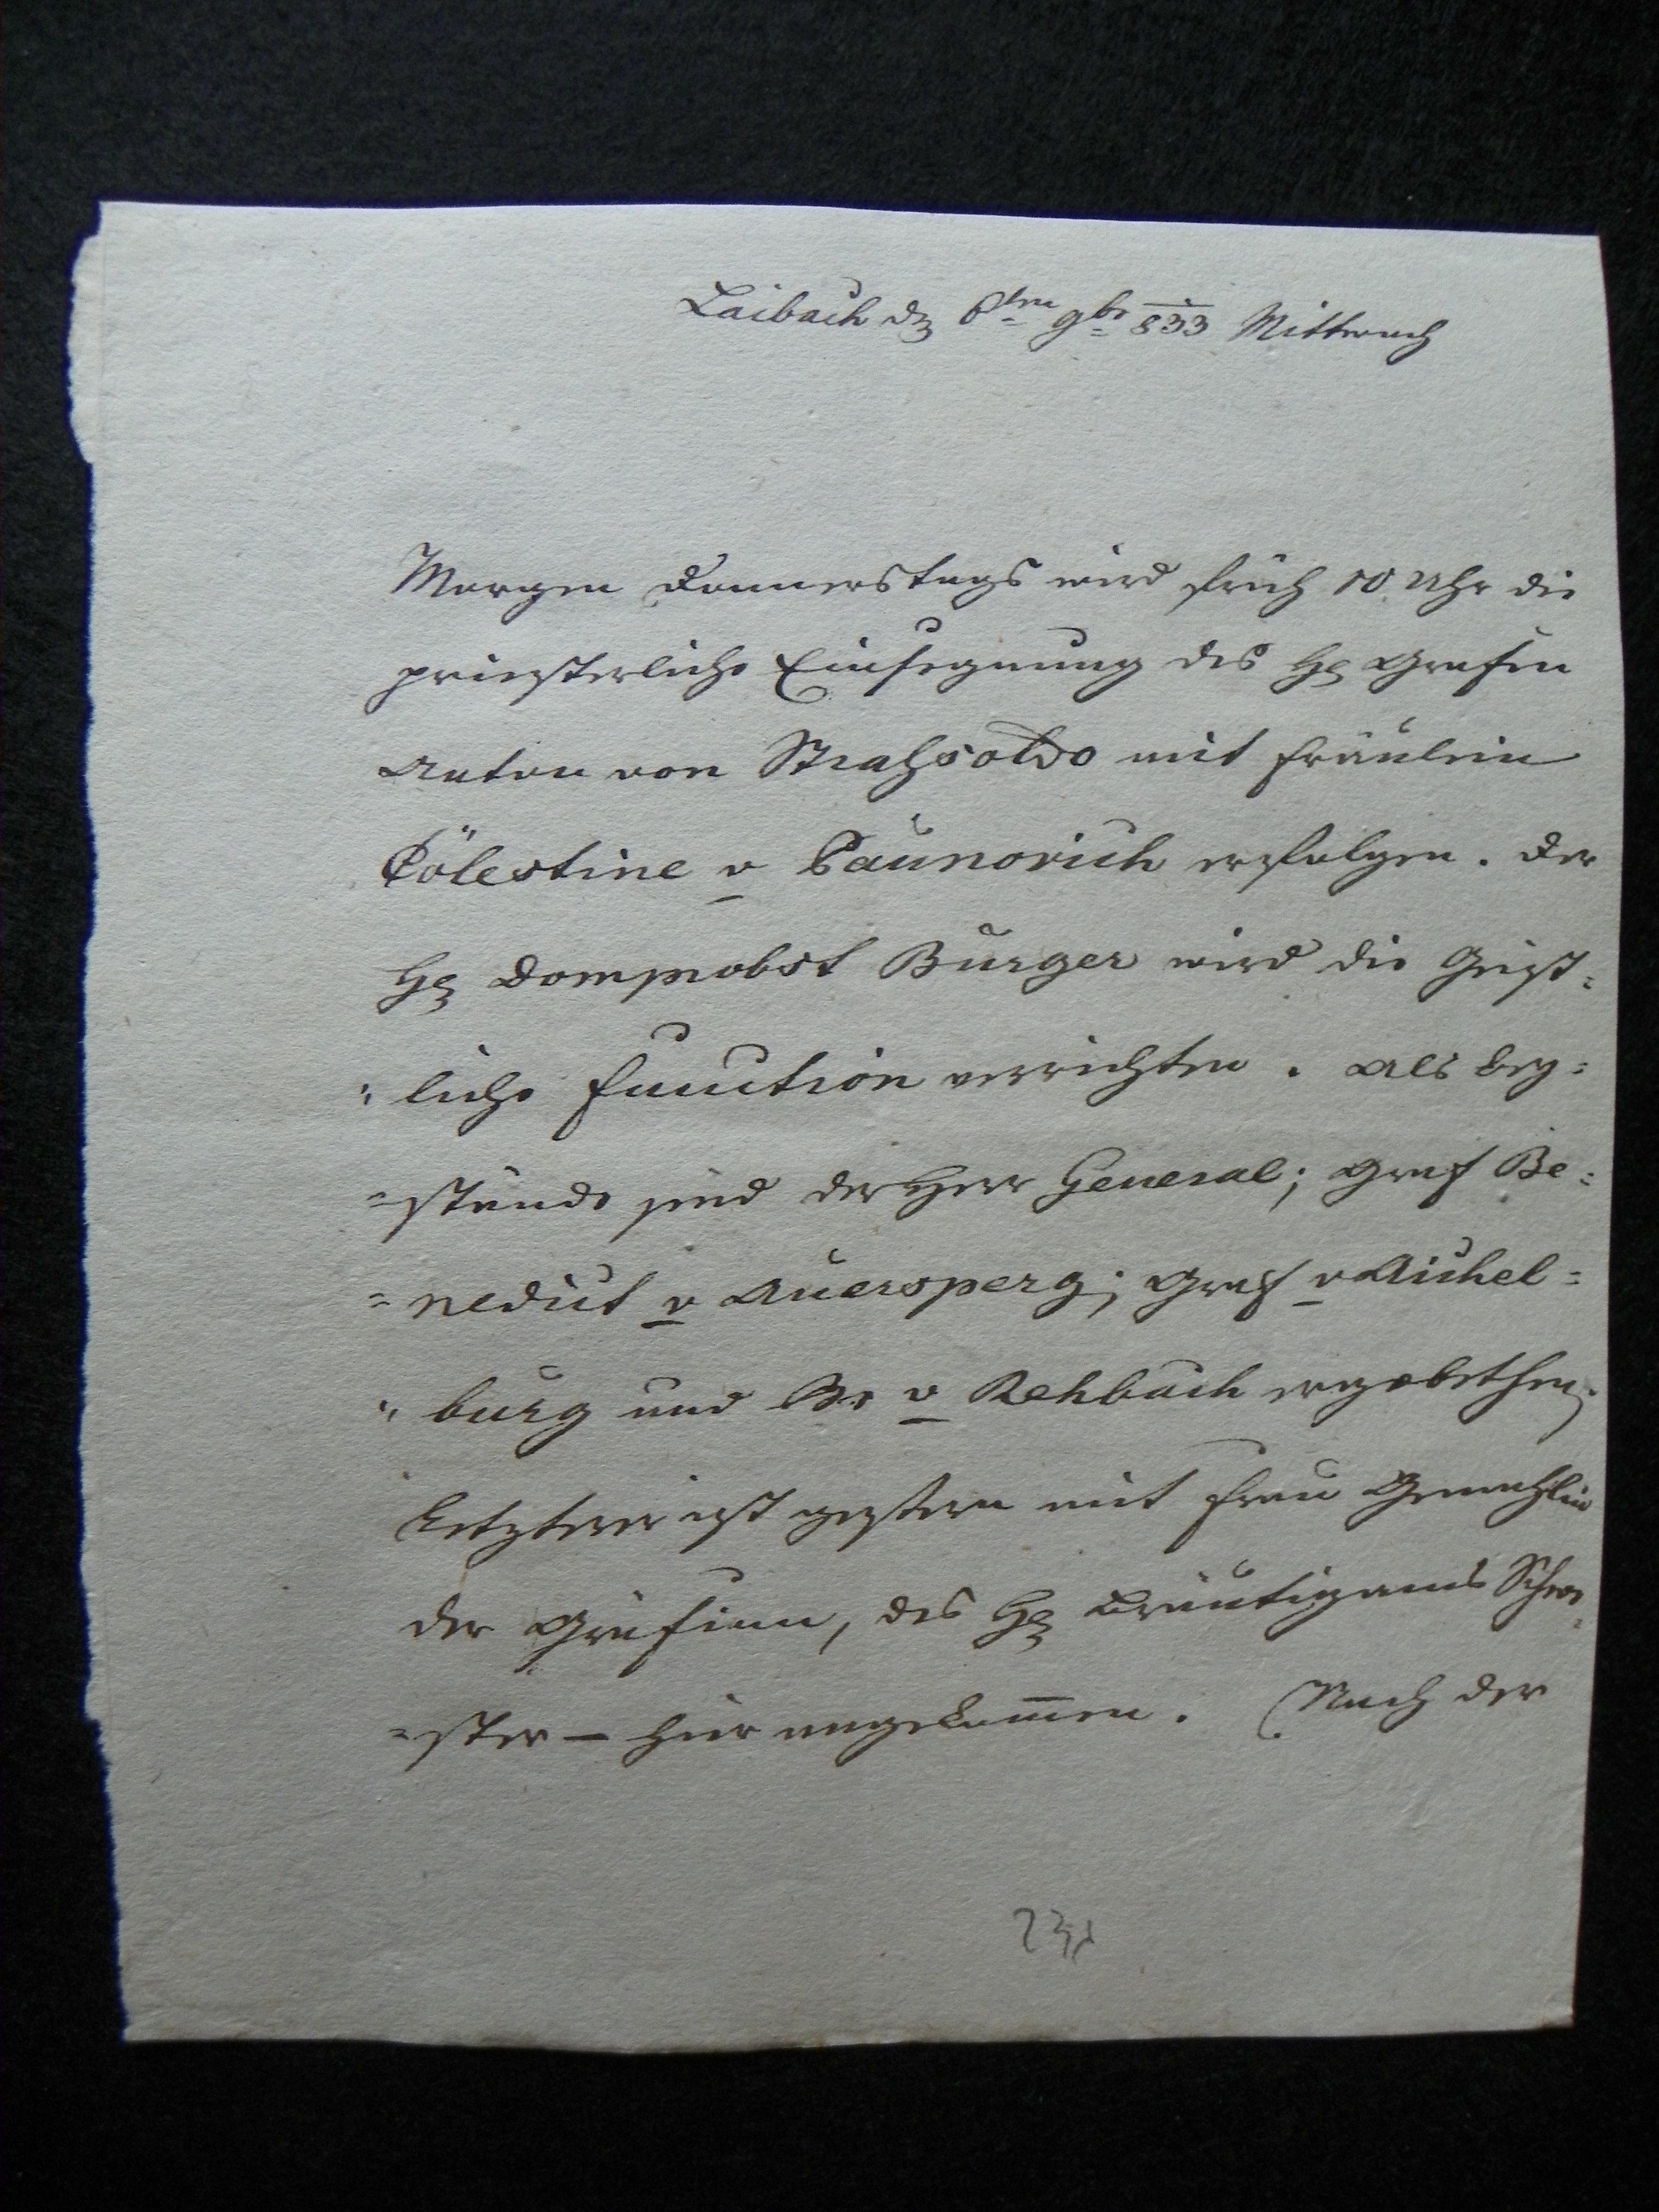 Laibach den 6ten 9br 833 Mittwoch
Morgen Donnerstags wird früh 10 Uhr die
priesterliche Einsegnung des H Grafen
Anton von Strahsoldo mit Fräulein
Cölestine v Paunovich erfolgen. Der
H Domprobst Burger wird die Geist-
liche Function verrichten. Als Bey-
stände sind der Herr General; Graf Be-
nedict v Auersperg; Graf v Aichel-
burg und Br v Rehbach ergebethen.
Letzterer ist gestern mit Frau Gemahlin
der Gräfinn, des H Bräutigams Schwe-
ster – hier angekom̅en. (Nach der